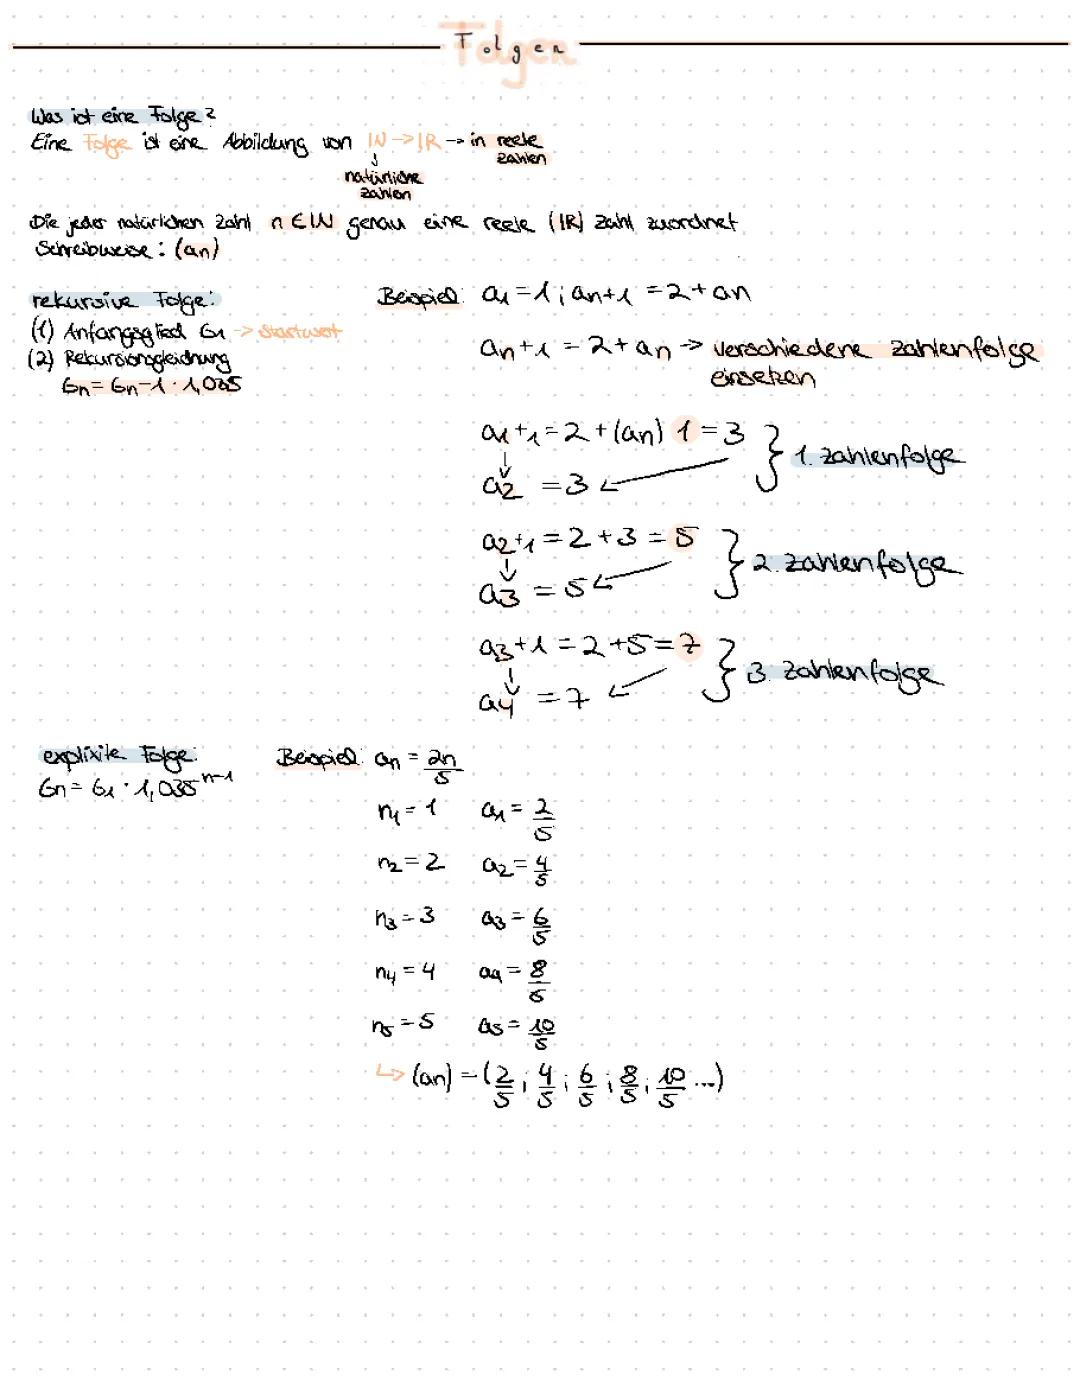 Folgen
Was ist eine Folge?
Eine Folge ist eine Abbildung von IN → IR → in reele Zahlen
↓
natürliche Zahlen
Die jeder natürlichen Zahl n ∈ IN genau eine reele (IR) Zahl zuordnet
Schreibweise: (an)
rekursive Folge:
(1) Anfangsglied G1 → Startwert
(2) Rekursionsgleichung
Gn = Gn-1 · 1,035
Beispiel: a1 = 1; an+1 = 2 + an
an+1 = 2 + an → verschiedene Zahlenfolge
einsetzen
a1+1 = 2 + (an) 1 = 3
a2 = 3
1. Zahlenfolge
a2+1 = 2 + 3 = 5
a3 = 5
2. Zahlenfolge
a3+1 = 2 + 5 = 7
a4 = 7
3. Zahlenfolge
explixite Folge:
Gn = G1 · 1,035^n-1
Beispiel: an = 2n/5
n1 = 1 a1 = 2/5
n2 = 2 a2 = 4/5
n3 = 3 a3 = 6/5
n4 = 4 a4 = 8/5
n5 = 5 a5 = 10/5
↳ (an) = (2/5; 4/5; 6/5; 8/5; 10/5 ...)